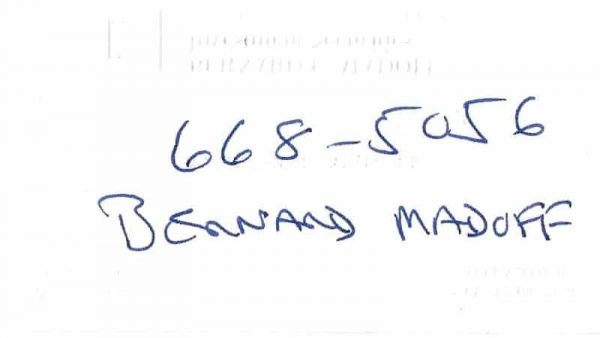 668-5056
BERNARD MADOFF